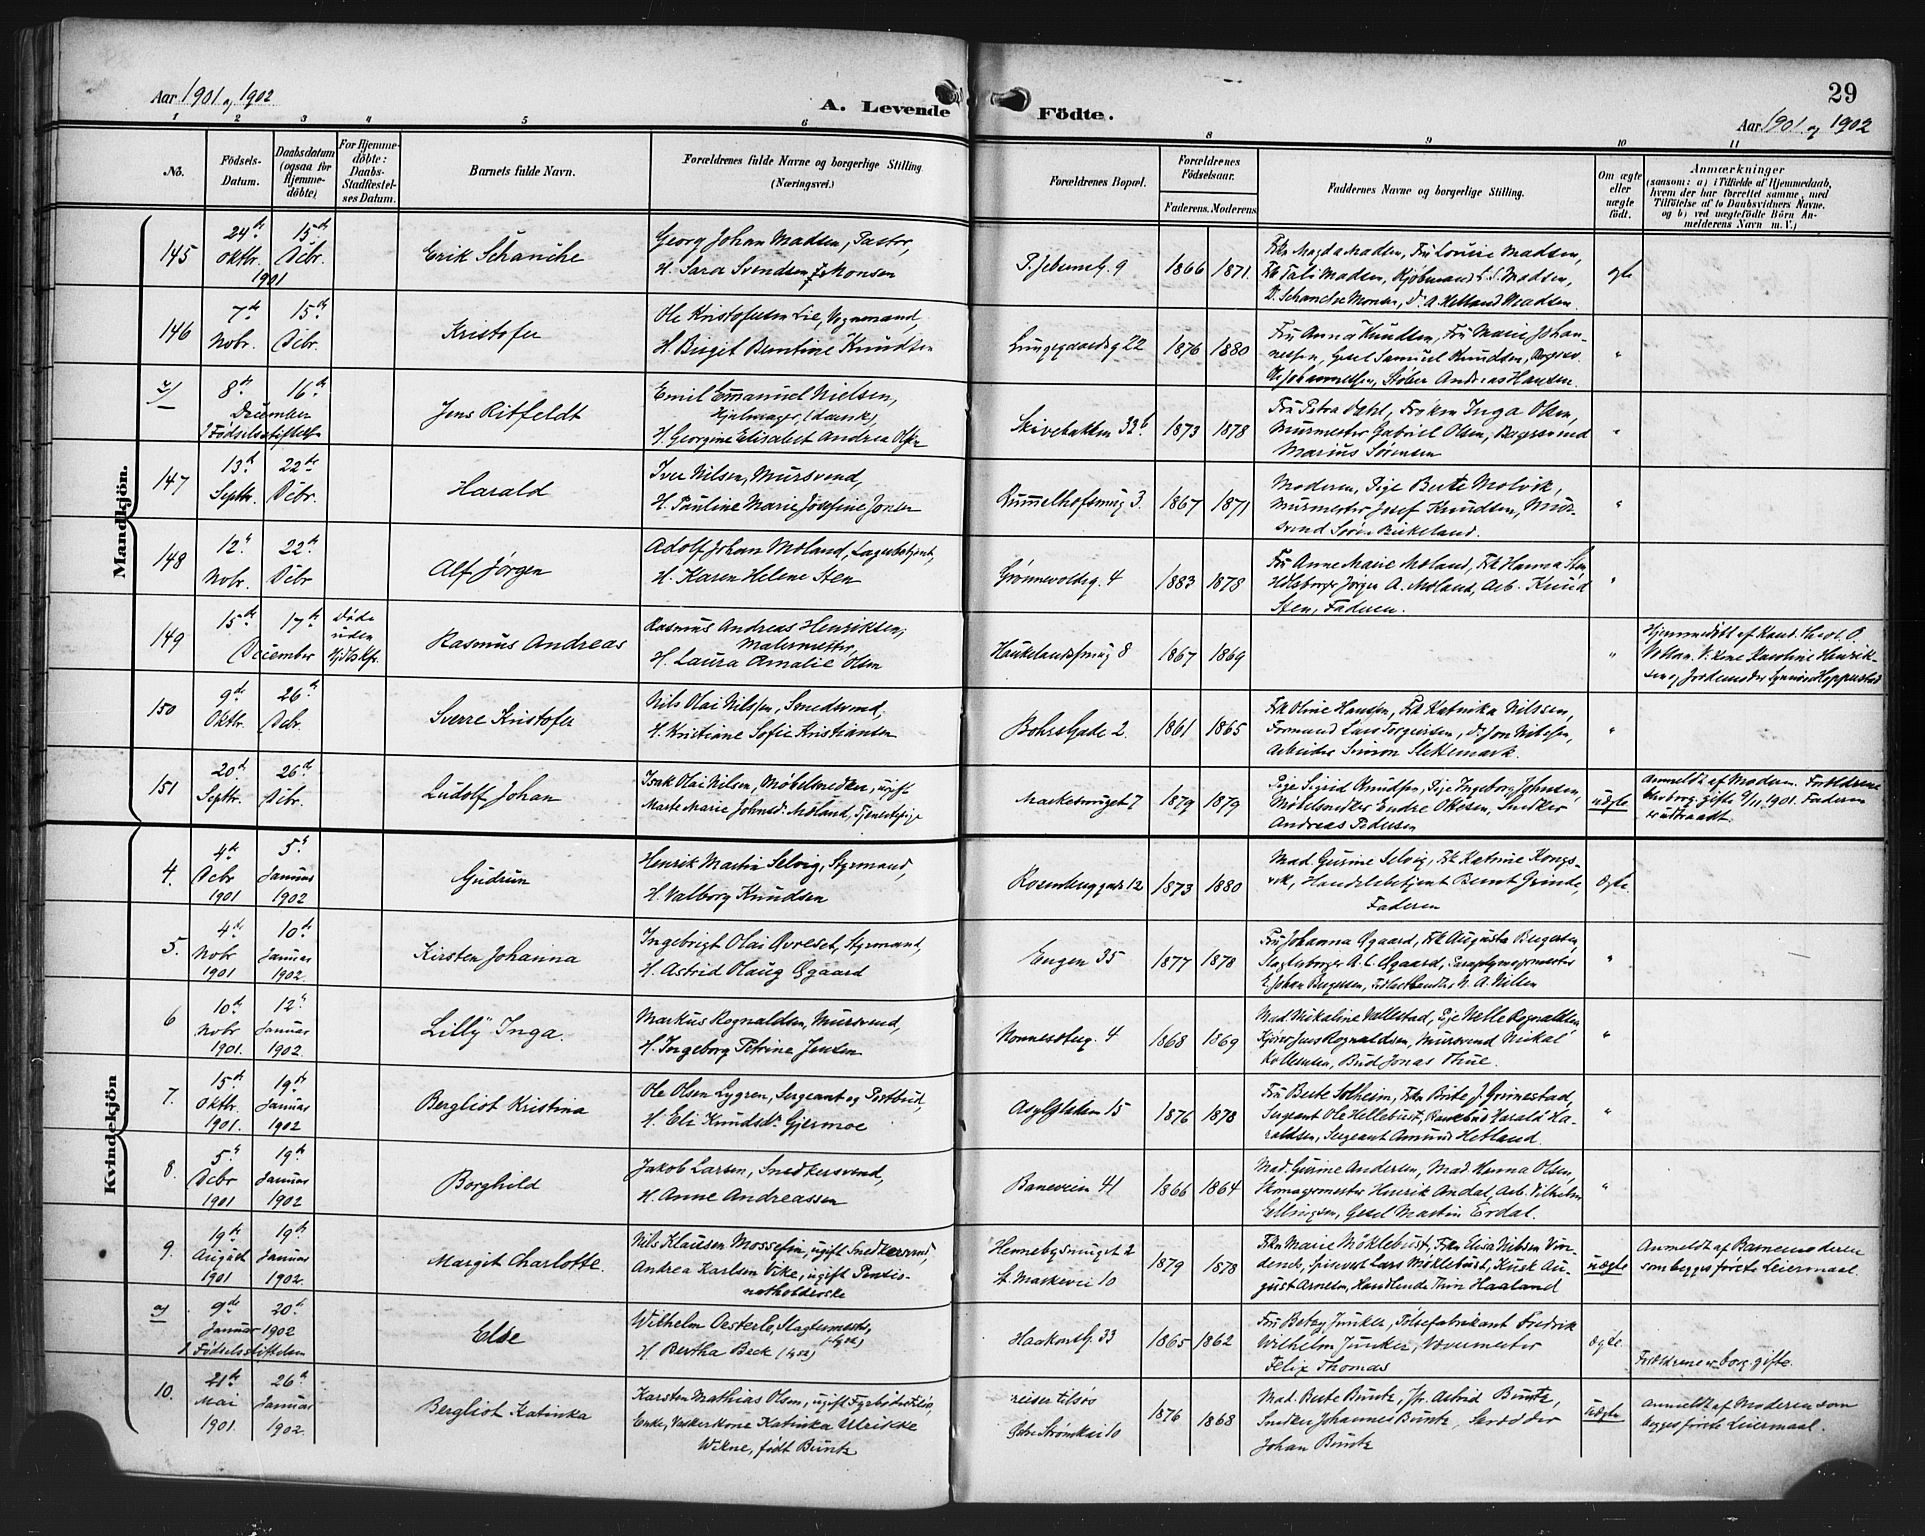 29
Aar 1901 og 1902
A. Levende
Födte.
Aar 1901 og 1902
1 2 3 4 5 6 8 9 10 11
No.
Födsels-
Datum.
Daabsdatum
(ogsaa for
Hjemme-
döbte)
For Hjemme-
döbte:
Daabs-
Stadfæstel-
ses Datum.
Barnets fulde Navn.
Forældrenes fulde Navne og borgerlige Stilling
(Næringsvei.)
Forældrenes Bopæl.
Forældrenes
Födselsaar.
Faderens. Moderens
Faddernes Navne og borgerlige Stilling.
Om ægte
eller
uægte
födt.
Anmærkninger
(saasom: a) i Tilfælde af Hjemmedaab,
hvem der har forrettet samme, med
Tilföielse af to Daabsvidners Navne.
og b) ved uægtefödte Börn An-
melderens Navn m. V.)
Mandkjön.
145
24de Oktbr. 1901
15de Dcbr.
Erik Schanche
Georg Johan Madsen, Pastor,
H. Sara Svendsen f. Monsen
9
1866 1871.
Frkn Magda Madsen, Fru Louise Madsen,
Madsen, Kjøbmand Madsen,
D. Schanche Monsen, Madsen
ægte
146
7de Nobr.
15de Dcbr.
Kristofer
Ole Kristofersen Lie, Vognmand,
H. Birgit Berntine Knudsen
Lungegaardsg 22
1876 1880
Fru Anna Knudsen, Fru Marie Johan-
nessen, Gesel Samuel Knudsen,
Johannessen, Støber Andreas Hansen
"
8de December
16de
I Fødselsstiftelsen
Jens Ritfeldt
Emil Emanuel Nielsen,
(dansk),
H. Georgine Elisabet Andrea Olsen
Skivebakken 32b
1873 1878
Fru Petra Dahl, Frøken Inga Olsen,
Murmester Gabriel Olsen,
Marius Sørensen
"
147
13de Septbr.
22de Dcbr.
Harald
Iver Nilsen, Mursvend,
H. Pauline Marie Josefine Jonsen
Rummelhofsmug 3.
1867 1871
Moderen, Pige Berte Molvik,
Murmester Josef Knudsen, Mur-
svend Søren Birkeland.
"
148
12te Nobr.
22de Dcbr
Alf Jørgen
Adolf Johan Moland, Lagerbetjent,
H. Karen Helene Sten
Grønnevoldsg. 4
1883 1878
Fru Anne Marie Moland, Frk Hanna Sten
Jørgen A. Moland, Arb. Knud
Sten, Faderen.
"
149
15de
17de
December
Døde
uden
Rasmus Andreas
Rasmus Andreas Henriksen,
Malermester,
H. Laura Amalie Olsen
Haukelandssmug 8
1867 1869
"
Hjemmedøbt af Kand. theol. O.
V: Kone Karoline Henrik-
sen og Jordemoder Synnøve Hoppestad
150
9de Oktbr.
26de Dcbr.
Sverre Kristofer
Nils Olai Nilssen, Smedsvend,
H. Kristiane Sofie Kristiansen
Bohrs Gade 2.
1861 1865
Frk Oline Hansen, Frk Katrika Nilssen,
Formand Lars Torgersen, Do Jon Nilssen,
Arbeider Simon Slettemark
"
151
20de Septbr.
26de Dcbr.
Ludolf Johan
Isak Olai Nilsen, Møbelsnedker, ugift
Marte Marie Johnsdr Moland, Tjenestepige
Markesmuget 7
1879 1879
Pige Sigrid Knudsen, Pige Ingeborg Johnsen,
Møbelsnedker Endre Olsen, Snedker
Andreas Pedersen
uægte
Anmeldt af Modern. Forældrene
borg. gifte 9/11 1901. Faderen
er udtraadt.
Kvindekjön
4.
4de Dcbr 1901
5te Januar 1902
Gudrun
Henrik Martin Selvig, Styrmand,
H. Valborg Knudsen
Rosenberggade 12
1873 1880
Mad. Gurine Selvig, Frk Katrine Kongs-
vik, Handelsbetjent Bernt Grinde,
Faderen
Ægte
5.
4de Nobr 1901
10de Januar 1902.
Kirsten Johanna
Ingebrigt Olai Øvreset, Styrmand,
H. Astrid Olaug Øgaard
Engen 35
1877 1878
Fru Johanna Øgaard, Frk Augusta Bergesen,
A. L. Øgaard, Paraplymagermester
Johan Bergesen, N. A. Nilsen
"
6
10de Nobr 1901.
12te Januar 1902.
Lilly Inga.
Markus Rognaldsen, Mursvend,
H. Ingeborg Petrine Jensen
Nonnesterg. 4
1868 1869
Mad Nikaline Vallestad, Pige Nelle Rognaldsen
Jens Rognaldsen, Mursvend Nikal
Bud Jonas Thue.
"
7.
15de Oktbr. 1901.
19de Januar 1902
Bergliot Kristina
Ole Olsen Lygren, Sergeant og Postbud,
H. Eli Knudsdr Gjermoe
Asylpladsen 15
1876 1878
Fru Berte Solheim, Frkn Brite J. Grønestad,
Sergeant Ole Hellebust, Harald Ha-
raldsen, Sergeant Amund Hetland.
"
8.
5te Dcbr 1901
19de Januar 1902
Borghild
Jakob Larsen, Snedkersvend,
H. Anne Andreassen
Baneveien 41
1866 1864
Mad. Gurine Andersen, Mad. Hanna Olsen,
Skomagermester Henrik Andal, Arb. Vilhelm
Ellingsen, Gesel Martin Erdal.
"
9.
19de August 1901
19de Januar 1902.
Margit Charlotte.
Nils Klausen Mossefin, ugift Snedkersvend,
Andrea Karlsen Vike, ugift Pensio-
natholderske
Hennebysmuget 2
St. Markevei 10
1879 1878
Frkn Marie Møklebust, Frkn Elisa Nilsen
Lars Møklebust, Kusk Au-
gust Arnesen, Handlende Haaland
uægte
Anmeldt af Barnemoderen
som begges første Leiermaal.
9de 20de
Januar 1902
I Fødselsstiftelsen
Else
Wilhelm Oesterle, Slagtermester,
(tysk)
H. Bertha Beck (tysk)
Haakonsg. 33
1865 1862
Fru Betzy Junker, Pølsefabrikant Fredrik
Wilhelm Junker, Vævermester
Felix Thomas
Ægte.
Forældrene er borg. gifte.
10.
21de Mai 1901.
26de Januar 1902.
Bergliot Katinka
Karsten Mathias Olsen, ugift
Enke, Vaskerkone Katinka Ulrikke
Wikne, født Buntz
reiser tilsøs
Strømkai 10
1876 1868
Mad. Berte Buntz, Astrid Buntz,
Snedker Johannes Buntz,
Johan Buntz
Uægte
Anmeldt af Moderen som
begges første Leiermaal.